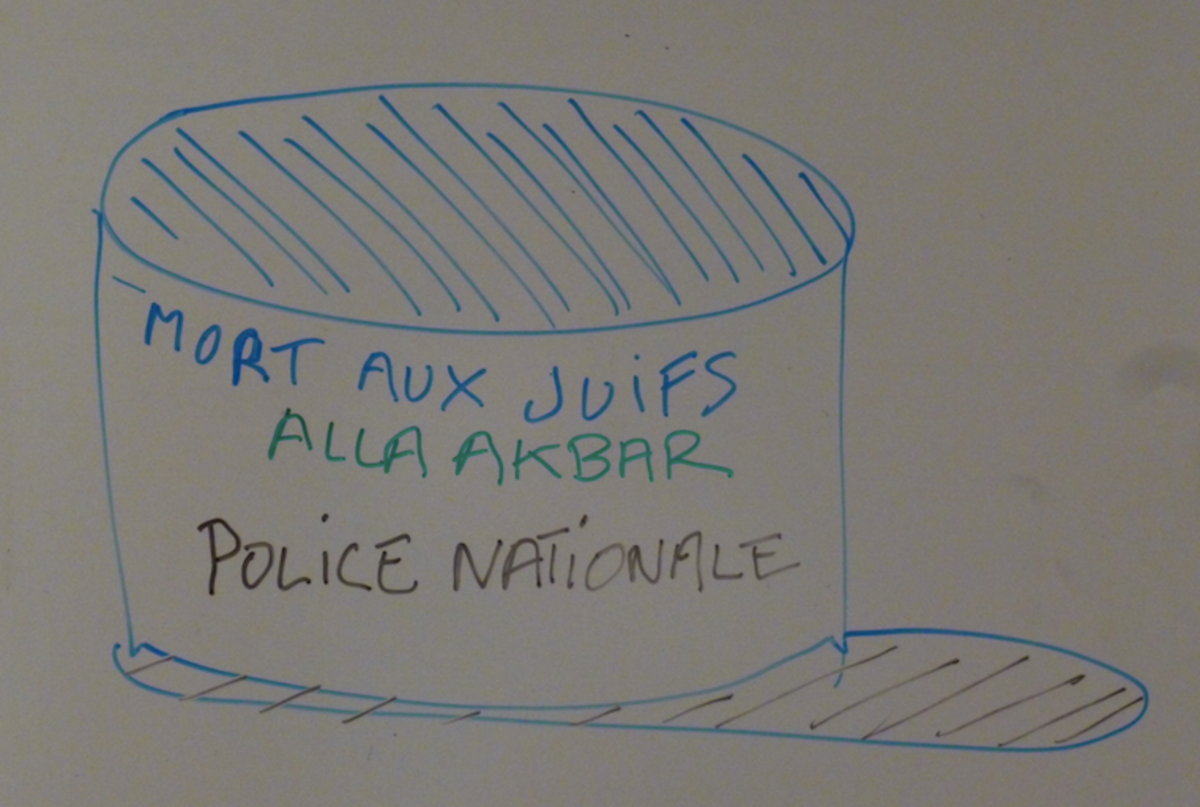 MORT AUX JUIFS
ALLA AKBAR
POLICE NATIONALE